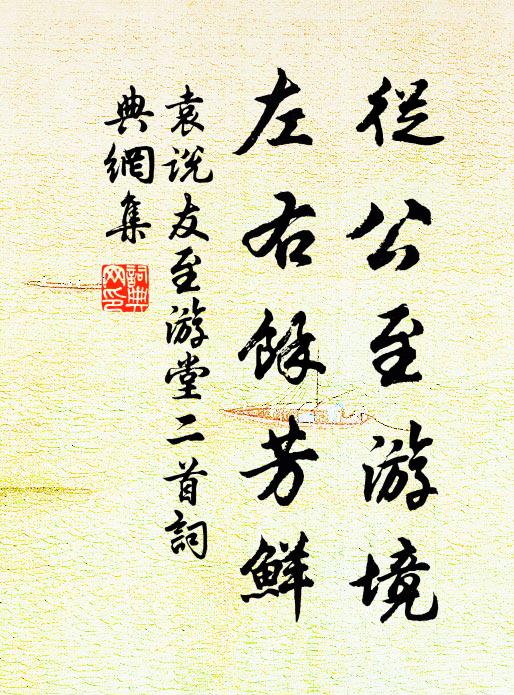 從公至游境
左右餘芳鮮
袁説友至游堂二首詞
典網集
詞典网印